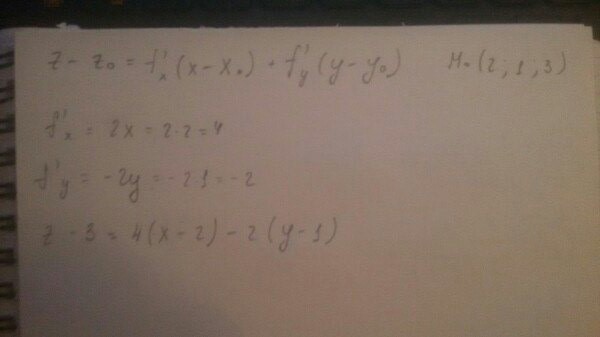 z - z₀ = f'ₓ (x - x₀) + f'ᵧ (y - y₀) M₀ (2 ; 1 ; 3)
f'ₓ = 2x = 2·2 = 4
f'ᵧ = -2y = -2·1 = -2
z - 3 = 4(x - 2) - 2(y - 1)